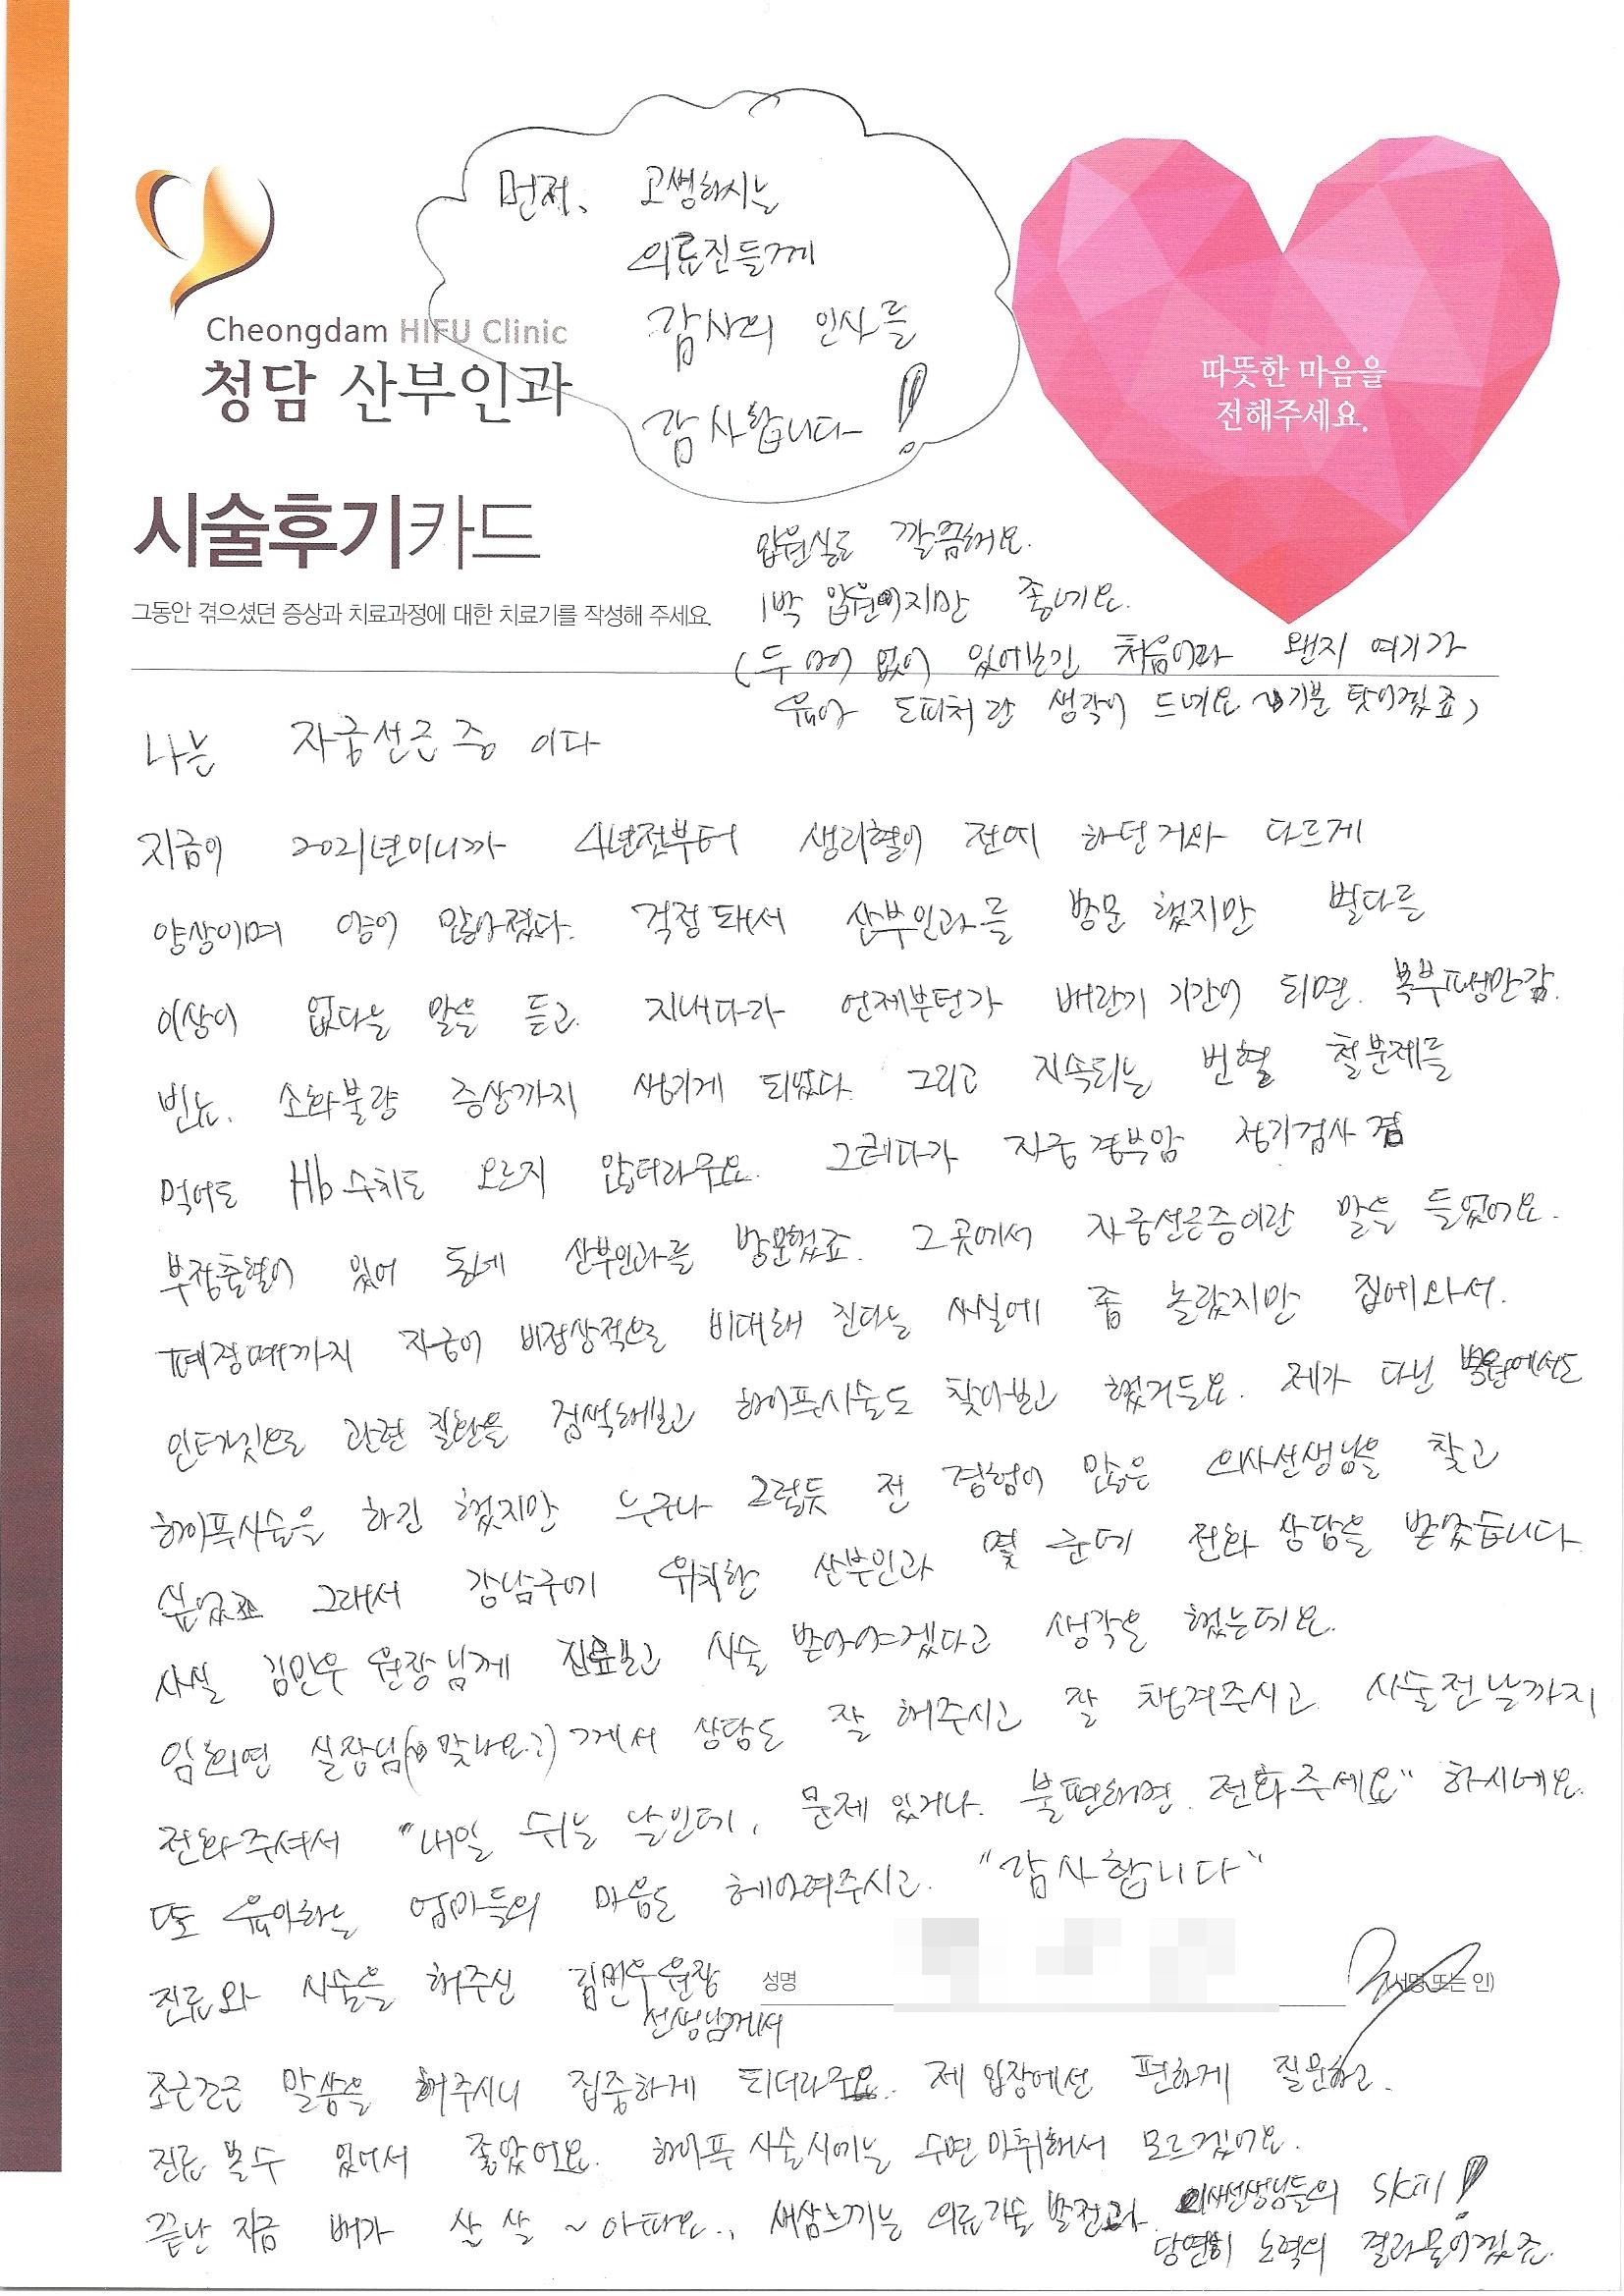 먼저, 고생하시는
의료진들께
감사의 인사를
감사합니다!
Cheongdam HIFU Clinic
청담 산부인과
따뜻한 마음을
전해주세요.
시술후기카드
그동안 겪으셨던 증상과 치료과정에 대한 치료기를 작성해 주세요.
입원실도 깔끔해요.
1박 입원이지만 좋네요.
(두 없이 있어보긴 처음이라 왠지 여기가
육아 도피처란 생각이 드네요 기분 탓이겠죠)
나는 자궁선근증 이다
지금이 2021년이니까 4년전부터 생리혈이 전에 하던거와 다르게
양상이며 양이 많아졌다. 걱정돼서 산부인과를 방문 했지만 별다른
이상이 없다는 말을 듣고 지내다가 언제부턴가 배란기 기간이 되면 복부팽만감.
빈뇨. 소화불량 증상까지 생기게 되었다 그리고 지속되는 빈혈 철분제를
먹어도 Hb 수치도 오르지 않더라구요. 그러다가 자궁경부암 정기검사 겸
부정출혈이 있어 동네 산부인과를 방문했죠. 그곳에서 자궁선근증이란 말을 들었어요.
폐경때까지 자궁이 비정상적으로 비대해 진다는 사실에 좀 놀랐지만 집에와서.
인터넷으로 관련 질환을 검색해보고 하이푸시술도 찾아보고 했거든요. 제가 다닌 병원에서도
하이푸시술을 하긴 했지만 누구나 그렇듯 전 경험이 많은 의사선생님을 찾고
싶었죠 그래서 강남구에 위치한 산부인과 몇 군데 전화 상담을 받았습니다
사실 김민우 원장님께 진료보고 시술 받아야겠다고 생각을 했는데요.
임희연 실장님(맞나요?)께서 상담도 잘 해주시고 잘 챙겨주시고 시술전날까지
전화주셔서 "내일 쉬는 날인데, 문제 있거나 불편하면 전화주세요" 하시네요.
또 육아하는 엄마들의 마음도 헤아려주시고. "감사합니다"
진료와 시술을 해주신 김민우원장
성명
(서명 또는 인)
선생님께서
조근조근 말씀을 해주시니 집중하게 되더라구요. 제 입장에선 편하게 질문하고.
진료 볼수 있어서 좋았어요. 하이푸 시술시에는 수면 마취해서 모르겠어요.
끝난 지금 배가 살 살 ~ 아파요., 새삼느끼는 의료기술 발전과 의사선생님들의 skill!
당연히 노력의 결과물이겠죠.